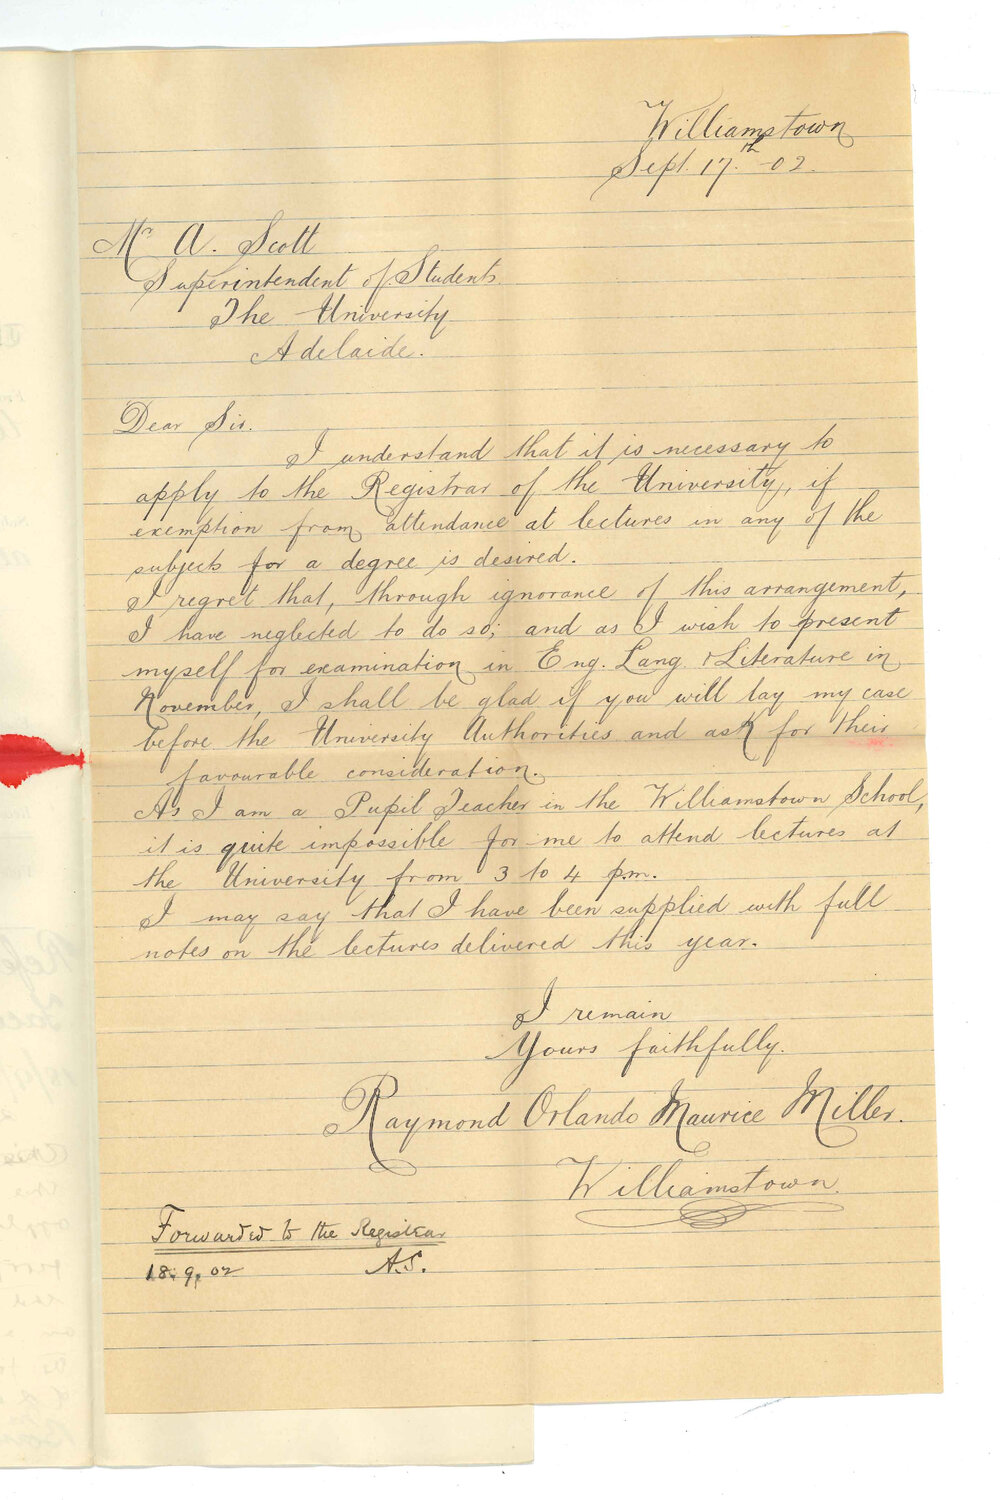 Williamstown
Sept. 17th -02.
Mr A. Scott
Superintendent of Students
The University
Adelaide.
Dear Sir.
I understand that it is necessary to
apply to the Registrar of the University, if
exemption from attendance at lectures in any of the
subjects for a degree is desired.
I regret that, through ignorance of this arrangement,
I have neglected to do so; and as I wish to present
myself for examination in Eng. Lang. & Literature in
November, I shall be glad if you will lay my case
before the University Authorities and ask for their
favourable consideration.
As I am a Pupil Teacher in the Williamstown School,
it is quite impossible for me to attend lectures at
the University from 3 to 4 p.m.
I may say that I have been supplied with full
notes on the lectures delivered this year.
I remain
Yours faithfully.
Raymond Orlando Maurice Miller.
Williamstown.
Forwarded to the Registrar
18.9.02 A.S.